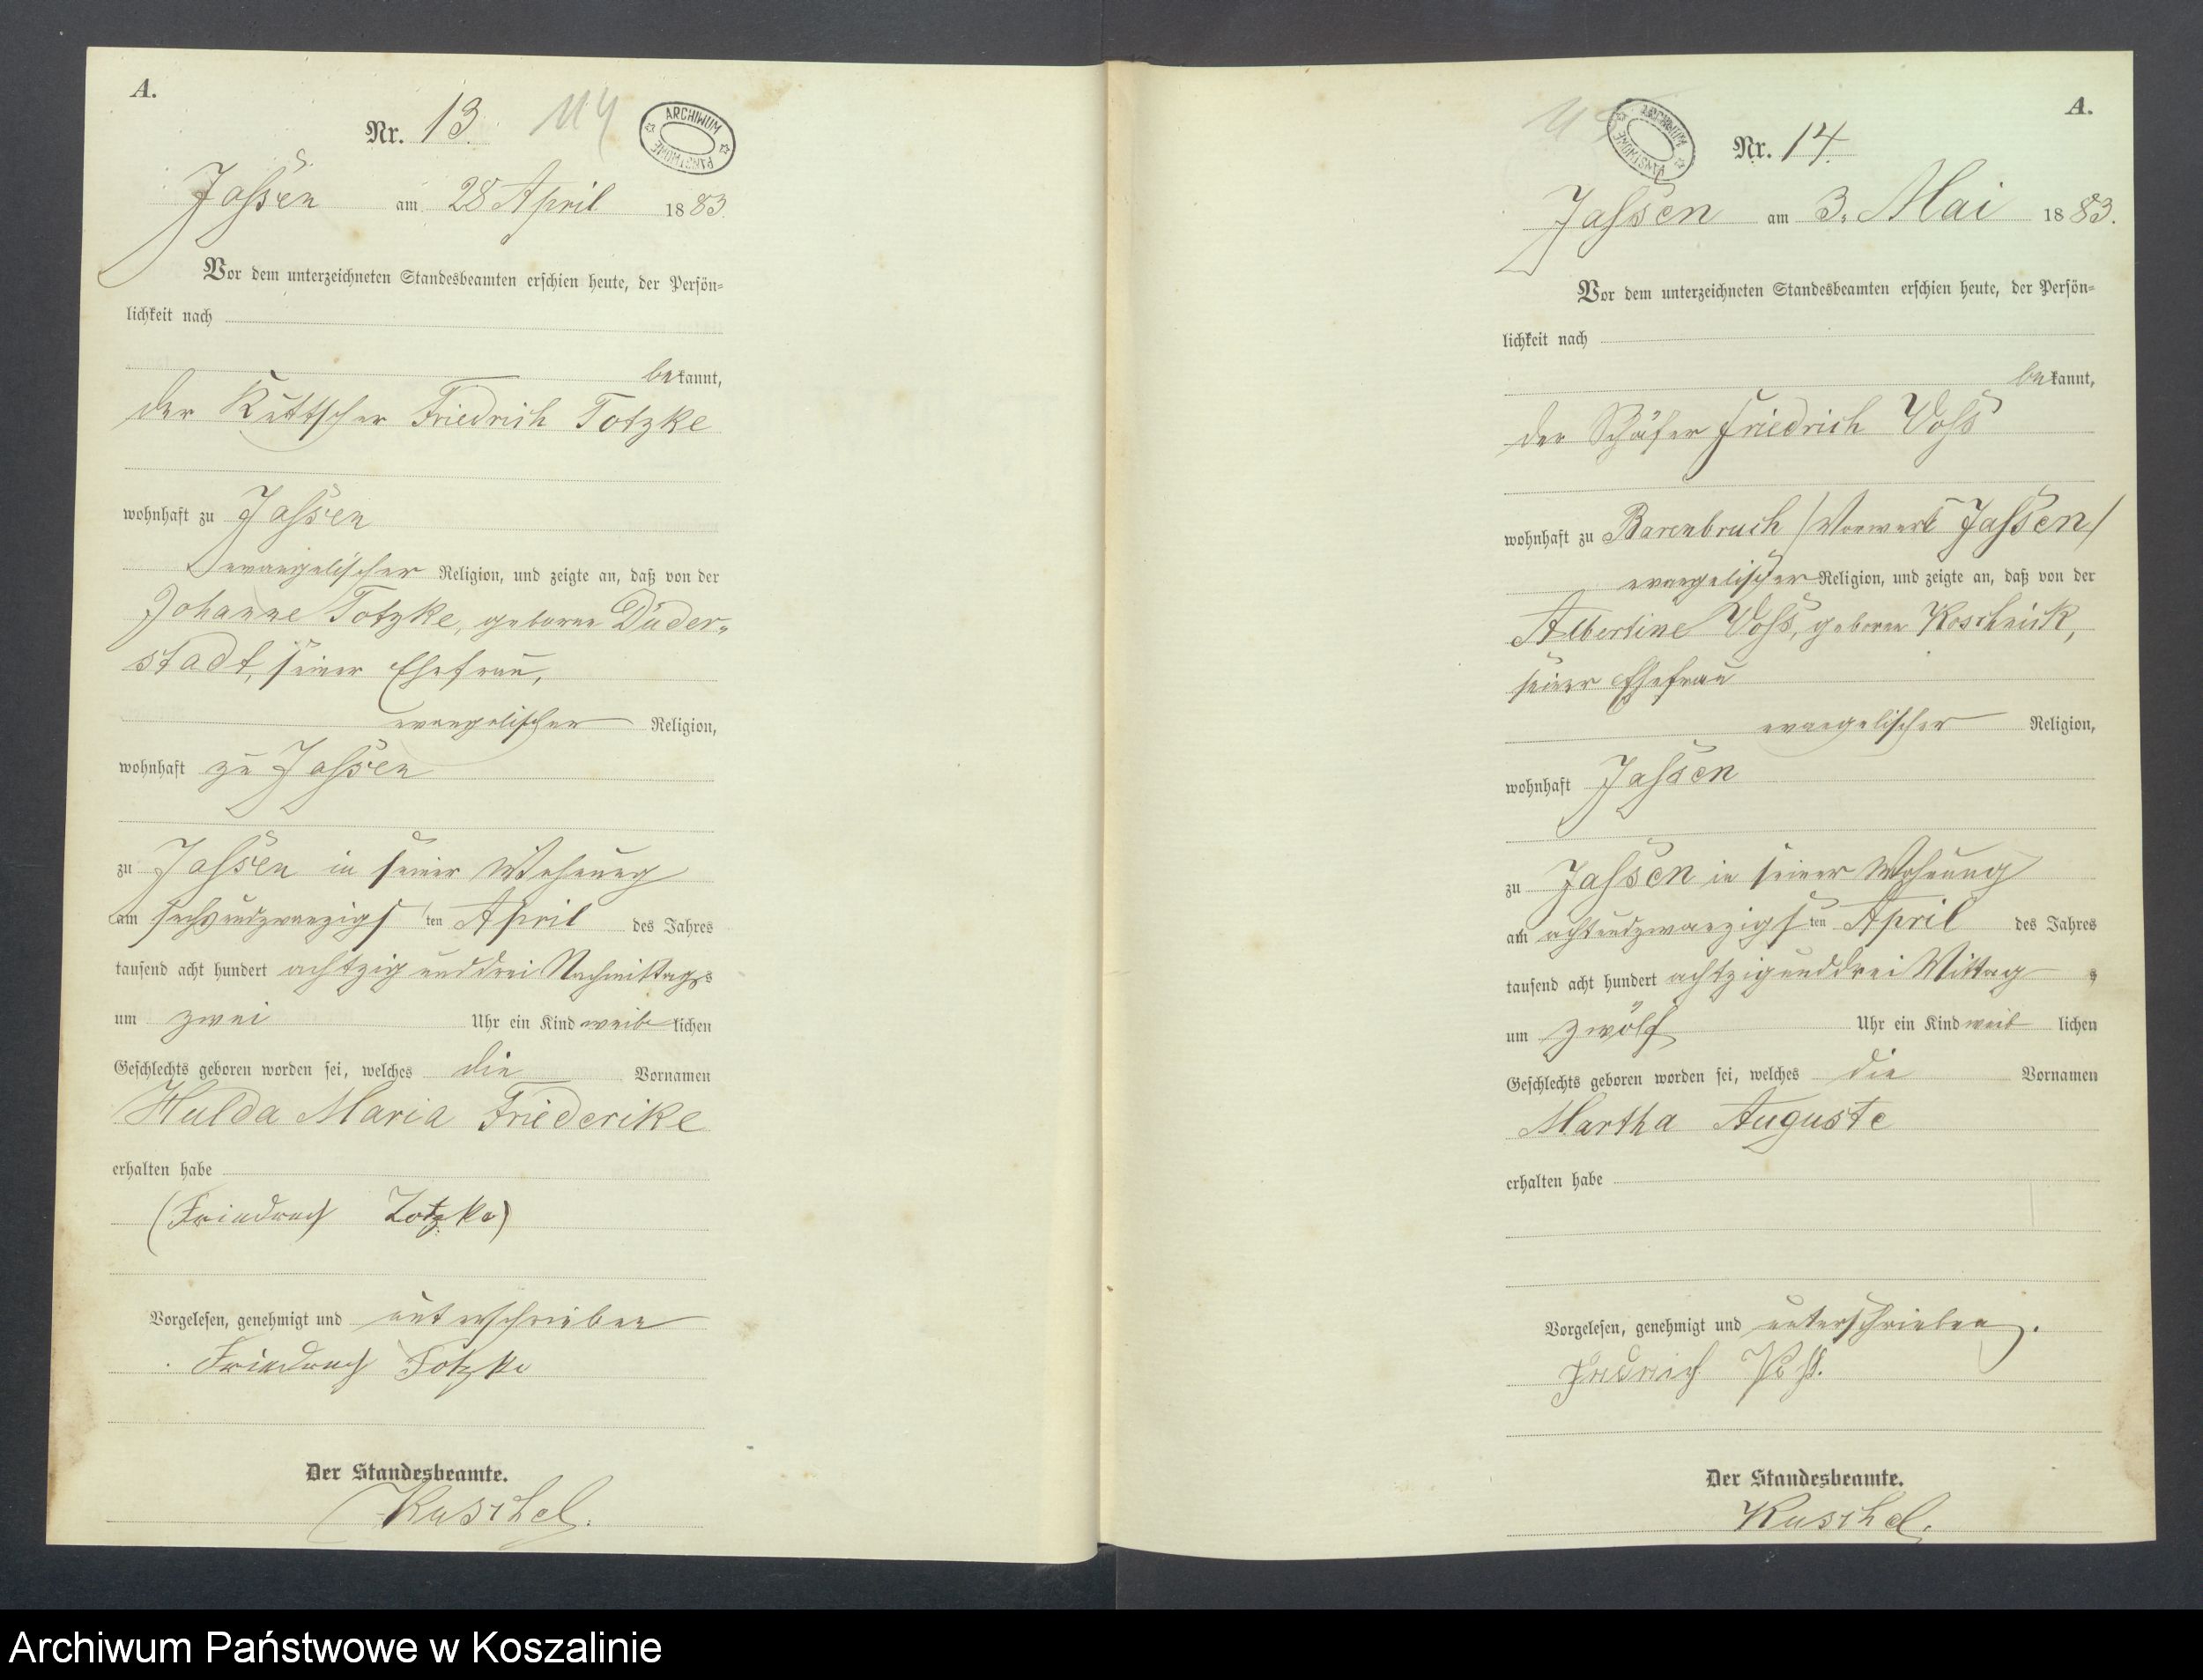 A.
Nr. 13. 114
ARCHIWUM PAŃSTWOWE
Jassen am 28 April 1883.
Vor dem unterzeichneten Standesbeamten erschien heute, der Persön-
lichkeit nach
bekannt,
der Kuttscher Friedrich Totzke
wohnhaft zu Jassen
evangelischer Religion, und zeigte an, daß von der
Johanne Totzke, geborne Duder-
stadt, seiner Ehefrau,
evangelischer Religion,
wohnhaft zu Jassen
zu Jassen in seiner Wohnung
am sechsundzwanzigsten April des Jahres
tausend acht hundert achtzig und drei Nachmittags
um zwei Uhr ein Kind weiblichen
Geschlechts geboren worden sei, welches die Vornamen
Hulda Maria Friederike
erhalten habe
(Friedrich Totzke)
Vorgelesen, genehmigt und unterschrieben
Friedrich Totzke
Der Standesbeamte.
Kuschel.
A.
ARCHIWUM PAŃSTWOWE
Nr. 14.
Jassen am 3. Mai 1883.
Vor dem unterzeichneten Standesbeamten erschien heute, der Persön-
lichkeit nach
bekannt,
der Schäfer Friedrich Voss
wohnhaft zu Barenbruch /Vorwerk Jassen/
evangelischer Religion, und zeigte an, daß von der
Albertine Voss, geborne Koschnick,
seiner Ehefrau
evangelischer Religion,
wohnhaft Jassen
zu Jassen in seiner Wohnung
am achtundzwanzigsten April des Jahres
tausend acht hundert achtzig und drei Mittags
um zwölf Uhr ein Kind weiblichen
Geschlechts geboren worden sei, welches die Vornamen
Martha Auguste
erhalten habe
Vorgelesen, genehmigt und unterschrieben.
Fridrich Voß.
Der Standesbeamte.
Kuschel.
Archiwum Państwowe w Koszalinie